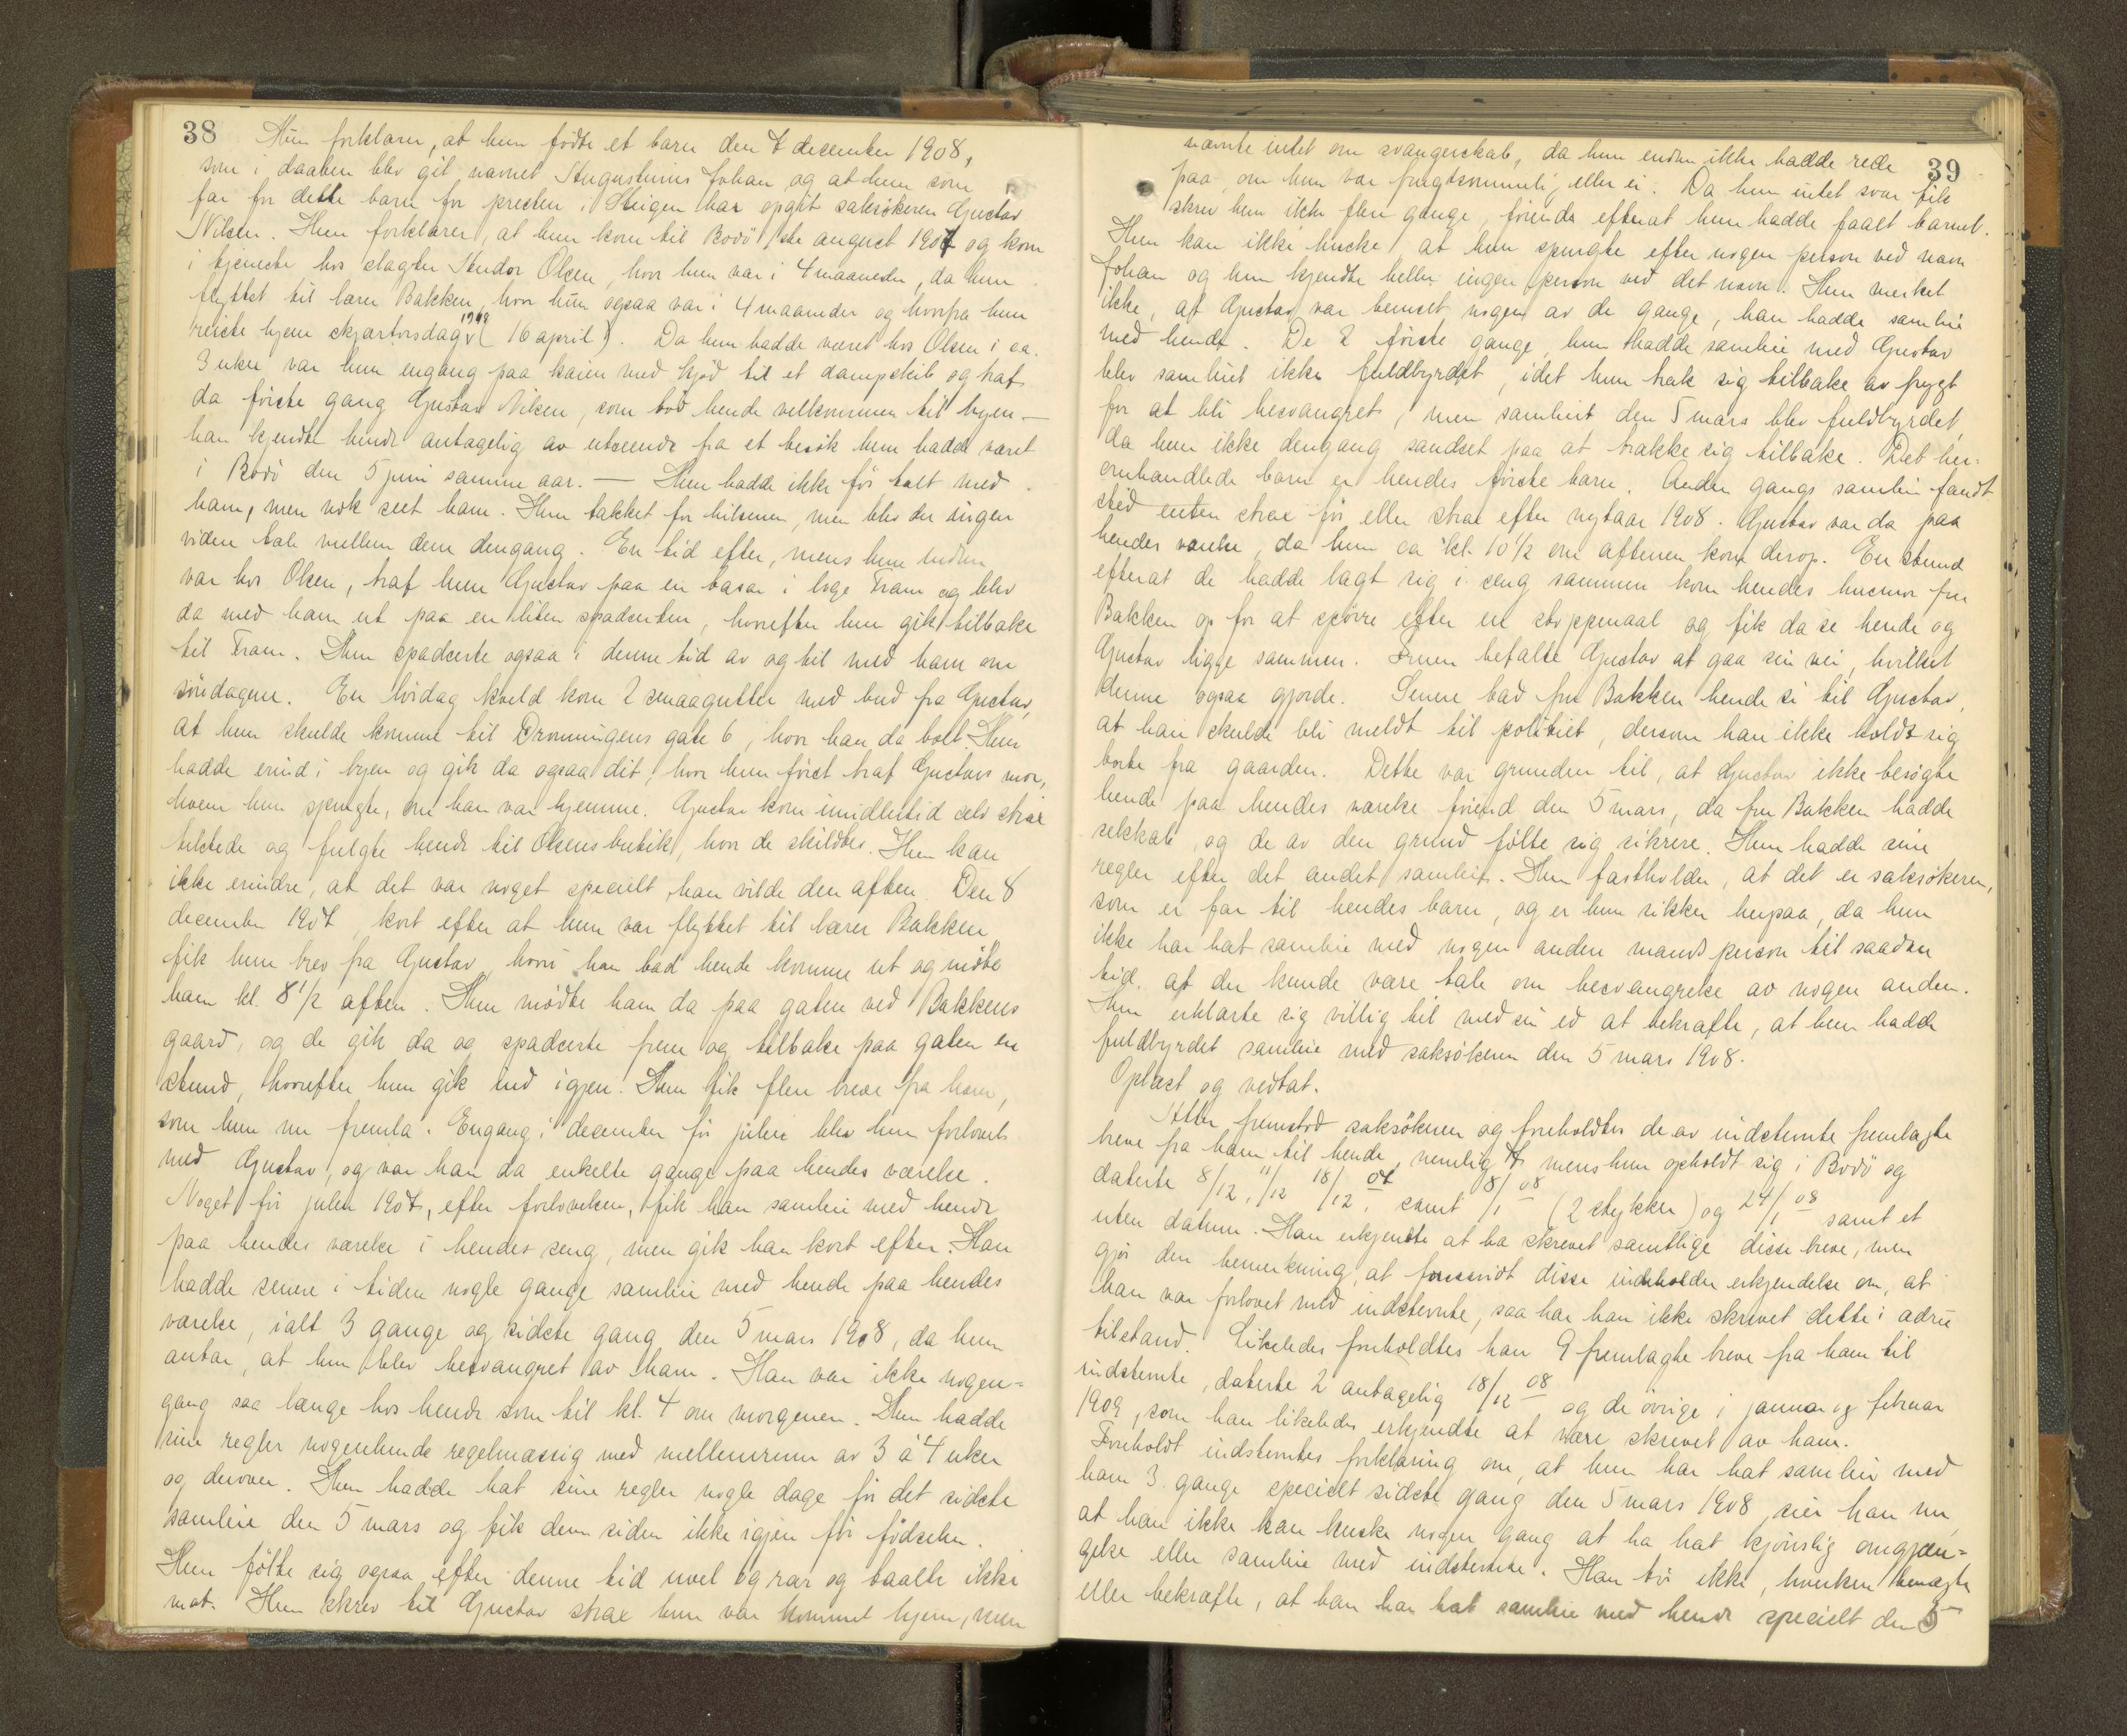 38
Hun forklarer, at hun fødte et barn den 7 december 1908,
som i daaben blev git navnet Augustinus Johan, og at hun som
far for dette barn for presten i Steigen har opgit saksökeren Gustav
Nilsen. Hun forklarer, at hun kom til Bodö 1ste august 1907 og kom
i tjeneste hos slagter Teodor Olsen, hvor hun var i 4 maaneder, da hun
flyttet til lærer Bakken, hvor hun ogsaa var i 4 maaneder og hvorfra hun
reiste hjem skjærtorsdag 1908 (16 april). Da hun hadde været hos Olsen i ca.
3 uker var hun engang paa kaien med kjød til et dampskib og traf
da første gang Gustav Nilsen, som bød hende velkommen til byen –
han kjendte hende antagelig av utseende fra et besök hun hadde været
i Bodö den 5 juni samme aar. – Hun hadde ikke før talt med
ham, men nok seet ham. Hun takket for hilsenen, men blev der ingen
videre tale mellem dem dengang. En tid efter, mens hun endnu
var hos Olsen, traf hun Gustav paa en basar i loge Fram og blev
da med ham ut paa en liten spadsertur, hvorefter hun gik tilbake
til Fram. Hun spadserte ogsaa i denne tid av og til med ham om
söndagene. En lördag kveld kom 2 smaagutter med bud fra Gustav,
at hun skulde komme til Dronningens gate 6, hvor han da bodt. Hun
hadde erind i byen og gik da ogsaa dit, hvor hun først traf Gustavs mor,
hvem hun spurgte, om han var hjemme. Gustav kom imidlertid selv strax
tilstede og fulgte hende til Olsens butik, hvor de skildtes. Hun kan
ikke erindre, at det var noget specielt han vilde den aften. Den 8
december 1907, kort efter at hun var flyttet til lærer Bakken
fik hun brev fra Gustav, hvori han bad hende komme ut og möte
ham kl. 8 1/2 aften. Hun mødte ham da paa gaten ved Bakkens
gaard, og de gik da og spadserte frem og tilbake paa gaten en
stund, hvorefter hun gik ind igjen. Hun fik flere breve fra ham,
som hun nu fremla. Engang i december før julen blev hun forlovet
med Gustav, og var han da enkelte gange paa hendes værelse.
Noget før julen 1907, efter forlovelsen, fik han samleie med hende
paa hendes værelse i hendes seng, men gik han kort efter. Han
hadde senere i tiden nogle gange samleie med hende paa hendes
værelse, ialt 3 gange og sidste gang den 5 mars 1908, da hun
antar, at hun blev besvangret av ham. Han var ikke nogen=
gang saa længe hos hende som til kl. 4 om morgenen. Hun hadde
sine regler nogenlunde regelmæssig med mellemrum av 3 à 4 uker
og derover. Hun hadde hat sine regler nogle dage før det sidste
samleie den 5 mars og fik dem siden ikke igjen før fødselen.
Hun følte sig ogsaa efter denne tid uvel og rar og taalte ikke
mat. Hun skrev til Gustav strax hun var kommet hjem, men
39
nævnte intet om svangerskab, da hun endnu ikke hadde rede
paa, om hun var frugtsommelig eller ei. Da hun intet svar fik
skrev hun ikke flere gange, förend efterat hun hadde faaet barnet.
Hun kan ikke huske, at hun spurgte efter nogen person ved navn
Johan og hun kjendte heller ingen person ved det navn. Hun merket
ikke, at Gustav var beruset nogen av de gange, han hadde samleie
med hende. De 2 første gange, hun hadde samleie med Gustav
blev samleiet ikke fuldbyrdet, idet hun trak sig tilbake av frygt
for at bli besvangret, men samleiet den 5 mars blev fuldbyrdet,
da hun ikke dengang sandset paa at trække sig tilbake. Det her=
omhandlede barn er hendes første barn. Anden gangs samleie fandt
sted enten strax før eller strax efter nytaar 1908. Gustav var da paa
hendes værelse, da hun ca kl. 10 1/2 om aftenen kom derop. En stund
efterat de hadde lagt sig i seng sammen kom hendes husmor fru
Bakken op for at spörre efter en stoppenaal og fik da se hende og
Gustav ligge sammen. Fruen befalte Gustav at gaa sin vei, hvilket
denne ogsaa gjorde. Senere bad fru Bakken hende si til Gustav,
at han skulde bli meldt til politiet, dersom han ikke holdt sig
borte fra gaarden. Dette var grunden til, at Gustav ikke besøgte
hende paa hendes værelse förend den 5 mars, da fru Bakken hadde
selskab, og de av den grund følte sig sikrere. Hun hadde sine
regler efter det andet samleie. Hun fastholder, at det er saksökeren,
som er far til hendes barn, og er hun sikker herpaa, da hun
ikke har hat samleie med nogen anden mandsperson til saadan
tid, at der kunde være tale om besvangrelse av nogen anden.
Hun erklærte sig villig til med sin ed at bekræfte, at hun hadde
fuldbyrdet samleie med saksökeren den 5 mars 1908.
Oplæst og vedtat.
Atter fremstod saksökeren og foreholdtes de av indstemte fremlagte
breve fra ham til hende, nemlig 7, mens hun opholdt sig i Bodö og
daterte 8/12, 11/12 18/12 07 samt 8/1 08 (2 stykker) og 24/1 08 samt et
uten datum. Han erkjendte at ha skrevet samtlige disse breve, men
gjør den bemerkning, at forsaavidt disse indeholder erkjendelse om, at
han var forlovet med indstemte, saa har han ikke skrevet dette i ædru
tilstand. Likeledes foreholdtes han 9 fremlagte breve fra ham til
indstemte, daterte 2 antagelig 18/12 08 og de övrige i januar og februar
1909, som han likeledes erkjendte at være skrevet av ham.
Foreholdt indstemtes forklaring om, at hun har hat samleie med
ham 3 gange specielt sidste gang den 5 mars 1908, sier han nu,
at han ikke kan huske nogen gang at ha hat kjønslig omgjæn=
gelse eller samleie med indstemte. Han tör ikke, hverken benægte
eller bekræfte, at han har hat samleie med hende specielt den 5